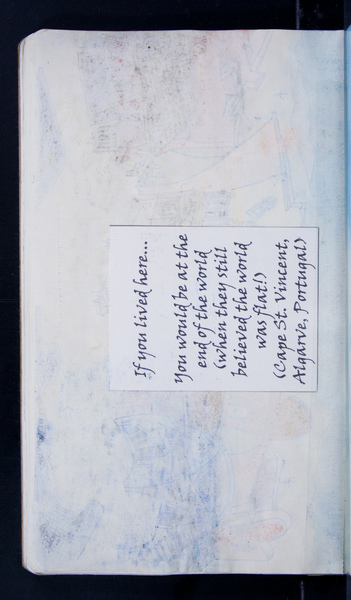 If you lived here...
You would be at the
end of the world
(when they still
believed the world
was flat!)
(Cape St. Vincent,
Algarve, Portugal)